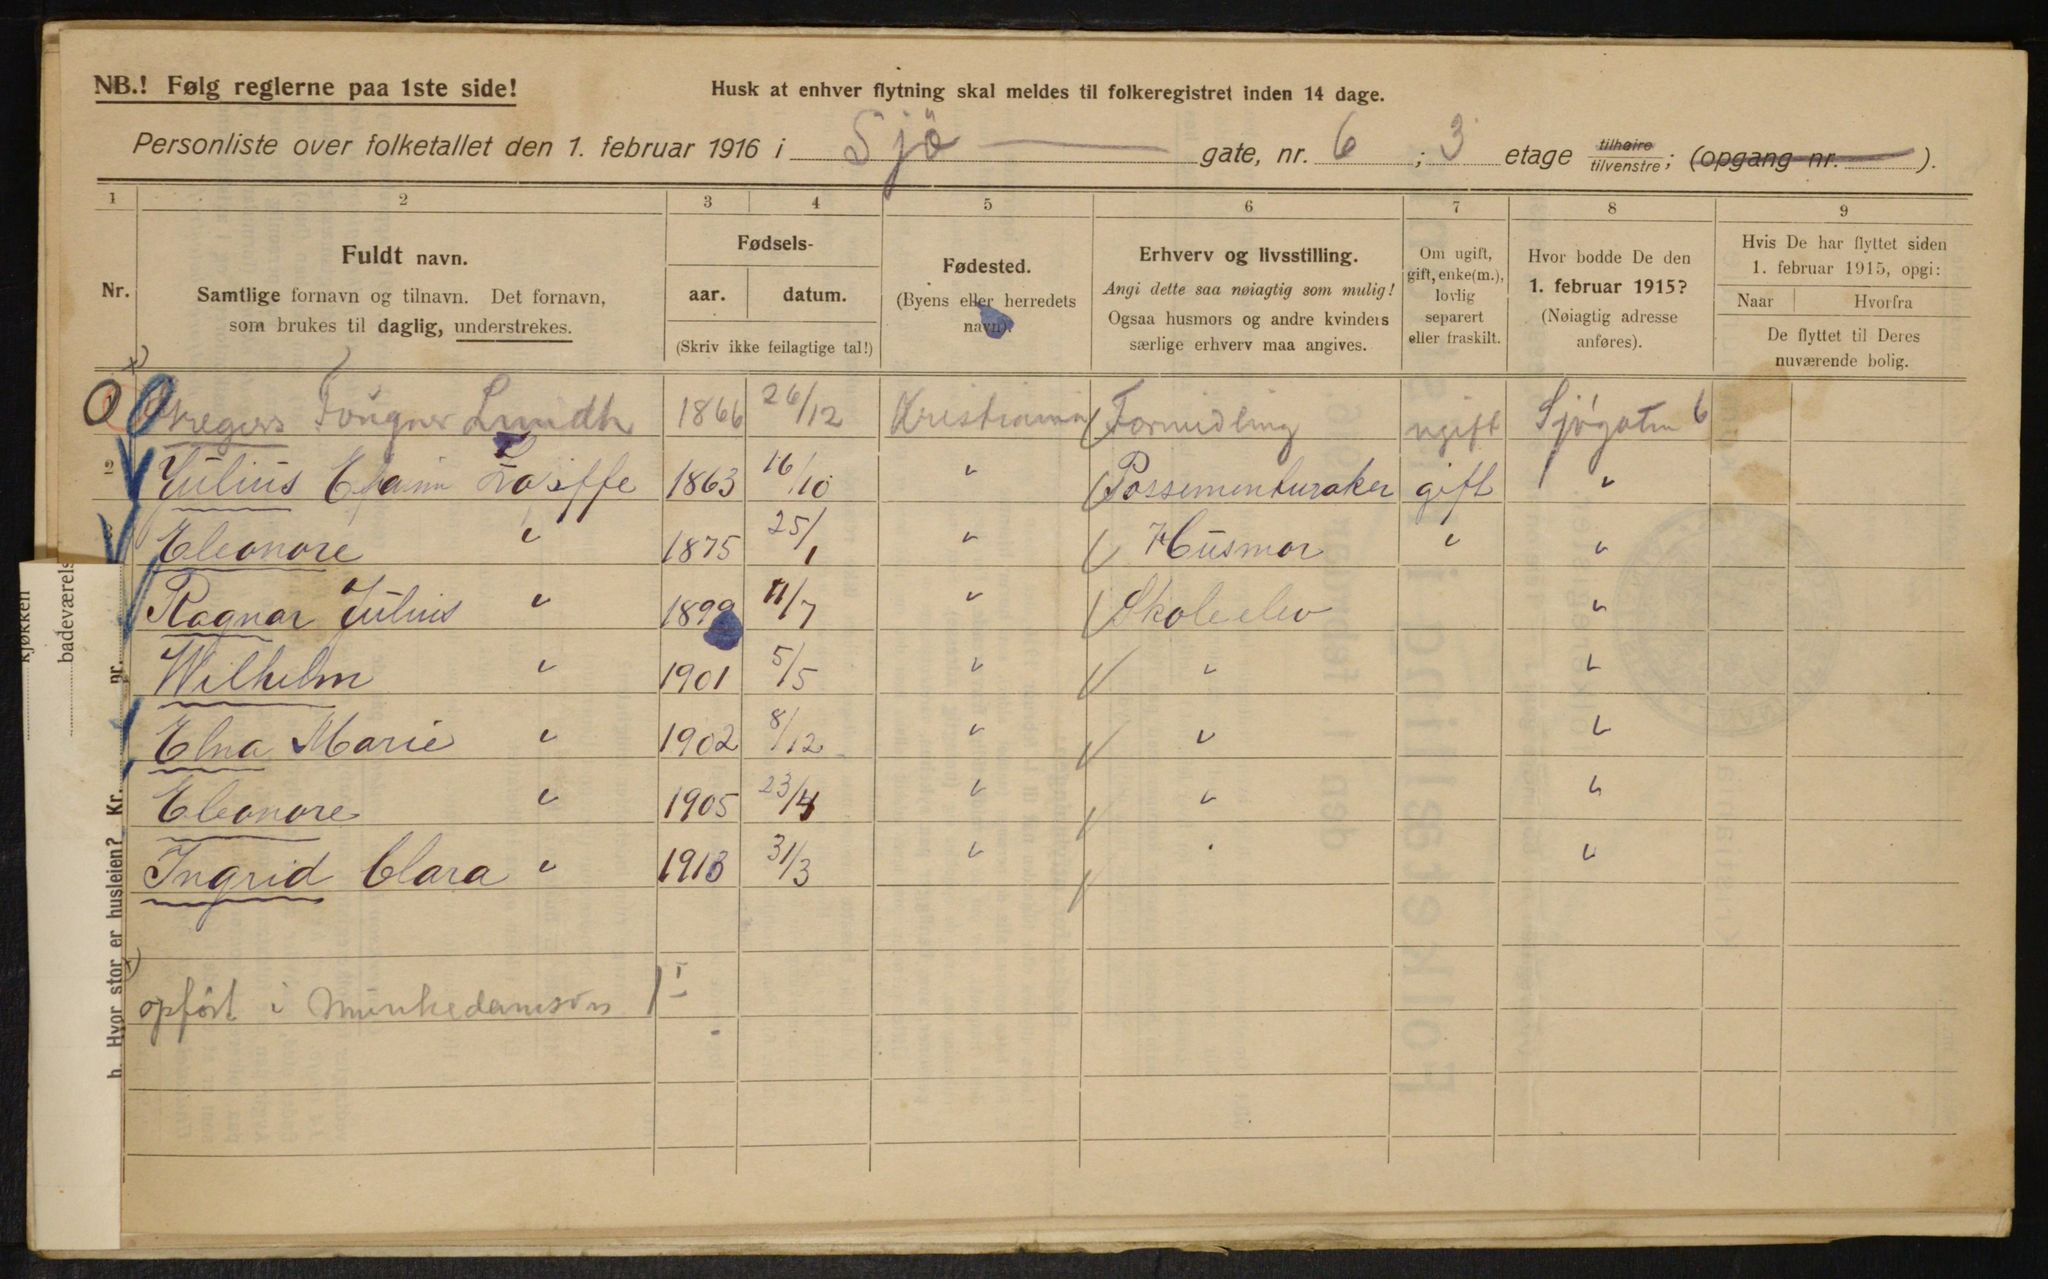 NB.! Følg reglerne paa 1ste side!
Husk at enhver flytning skal meldes til folkeregistret inden 14 dage.
Personliste over folketallet den 1. februar 1916 i Sjö gate, nr. 6; 3 etage tilhøire tilvenstre; (opgang nr. ).
1 2 3 4 5 6 7 8 9
Nr.
Fuldt navn.
Samtlige fornavn og tilnavn. Det fornavn,
som brukes til daglig, understrekes.
Fødsels-
aar. datum.
(Skriv ikke feilagtige tal!)
Fødested.
(Byens eller herredets
navn).
Erhverv og livsstilling.
Angi dette saa nøiagtig som mulig!
Ogsaa husmors og andre kvinders
særlige erhverv maa angives.
Om ugift,
gift, enke(m.),
lovlig
separert
eller fraskilt.
Hvor bodde De den
1. februar 1915?
(Nøiagtig adresse
anføres).
Hvis De har flyttet siden
1. februar 1915, opgi:
Naar Hvorfra
De flyttet til Deres
nuværende bolig.
Fougner Lundh 1866 26/12 Kristiania Formidling ugift Sjøgaten 6
2 Julius 1863 16/10 " Possementmaker gift "
Eleonore " 1875 25/1 " Husmor " "
Ragnar Julius " 1899 11/7 " Skoleelev "
Wilhelm " 1901 5/5 " " "
Elna Marie " 1902 8/12 " " "
Eleonore " 1905 23/4 " " "
Ingrid Clara " 1913 31/3 " "
opført i Munkedamsvn
kjøkken
badeværels
h. Hvor stor er husleien? Kr. pr.